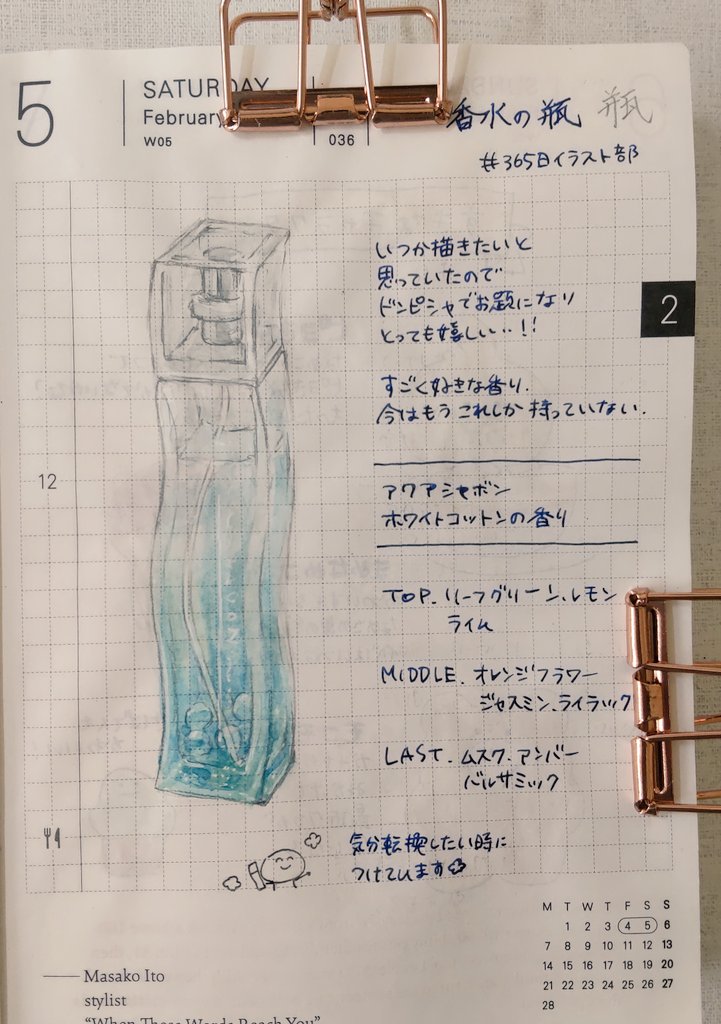 5
SATURDAY
February
W05
036
香水の瓶 瓶
#365日イラスト部
いつか描きたいと
思っていたので
ドンピシャでお題になり
とっても嬉しい‥!!
すごく好きな香り.
今はもうこれしか持っていない.
2
12
アクアシャボン
ホワイトコットンの香り
TOP. リーフグリーン.レモン
ライム
MIDDLE. オレンジフラワー
ジャスミン.ライラック
LAST. ムスク.アンバー
バルサミック
気分転換したい時に
つけています
M T W T F S S
1 2 3 4 5 6
7 8 9 10 11 12 13
14 15 16 17 18 19 20
21 22 23 24 25 26 27
28
Masako Ito
stylist
"When Those Words Reach You"